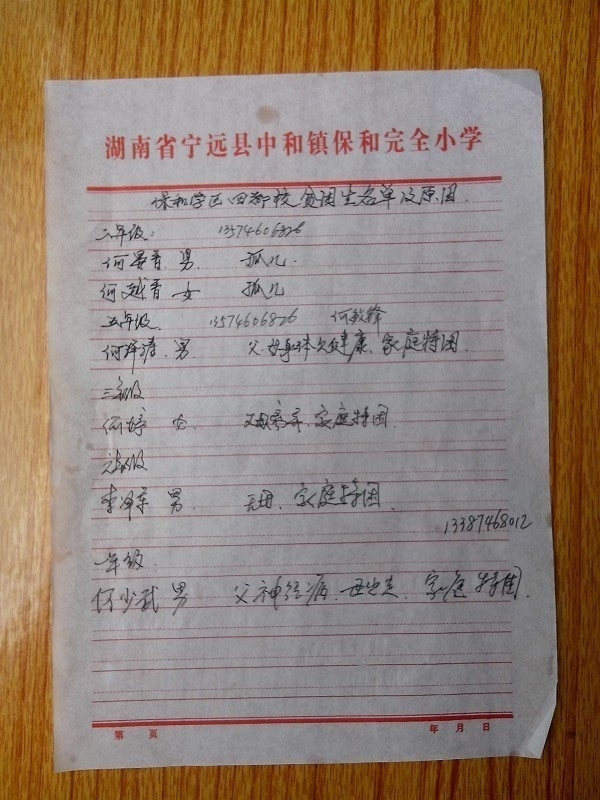 湖南省宁远县中和镇保和完全小学
保和学区四都校贫困生名单及原因
二年级: 13574606826
何晏青 男. 孤儿.
何越青 女 孤儿
五年级. 13574606826 何敏锋
何 男. 父.母身体欠健康、家庭特困.
三年级
何婷 女. 家庭特困.
六年级
李泽军 男 无母、家庭特困.
13387468012
一年级.
何少武 男 父神经病.母出走、家庭特困.
第 页 年 月 日